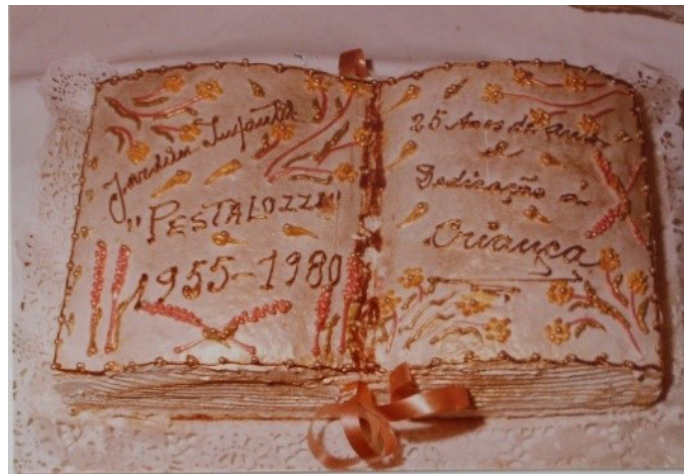 Jardim Infantil
"PESTALOZZI"
1955-1980
25 Anos de Amor
e
Dedicação á
Criança